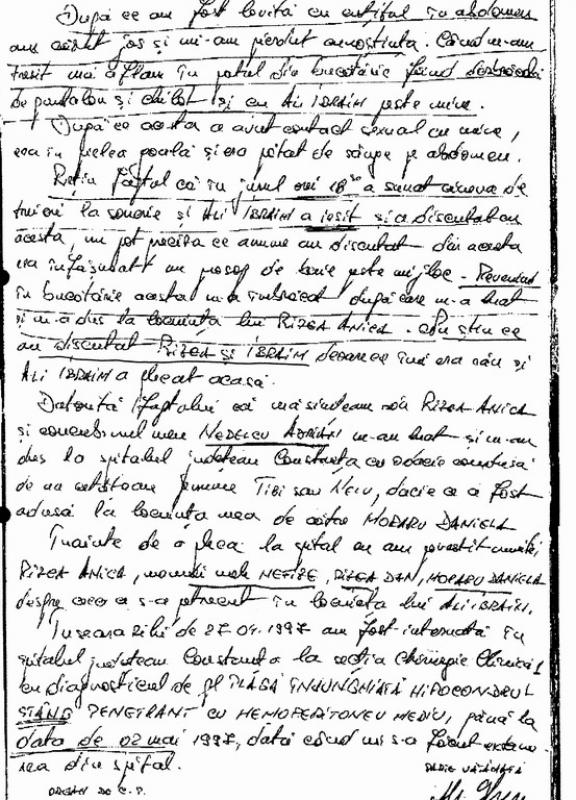 După ce am fost lovită cu cuțitul în abdomen
am căzut jos și mi-am pierdut cunoștința. Când m-am
trezit mă aflam în patul din bucătărie fiind dezbrăcată
de pantalon și chilot și cu ALI IBRAIM peste mine.
După ce acesta a avut contact sexual cu mine,
era în pielea goală și era pătat de sânge pe abdomen.
Rețin faptul că în jurul orei 18 a sunat cineva de
la sonerie și ALI IBRAIM a ieșit și a discutat cu
acesta, nu pot preciza ce anume au discutat dar acesta
era înfășurat cu prosop de baie peste mijloc. Revenind
în bucătărie acesta m-a îmbrăcat după care m-a luat
și m-a dus la locuința lui RIZEA ANICA. Nu știu ce
au discutat RIZEA ȘI IBRAIM deoarece îmi era rău și
ALI IBRAIM a plecat acasă.
Datorită faptului că mă simțeam rău RIZEA ANICA
și concubinul meu NEDELCU ADRIAN m-au luat și m-au
dus la spitalul județean Constanța cu o dacie condusă
de un cetățean pe nume TIBI sau NELU, dacie ce a fost
adusă la locuința mea de către MORARU DANIELA
Înainte de a pleca la spital eu am povestit numitei
RIZEA ANICA, mamei mele NEFIZE, RIZEA DAN, MORARU DANIELA
despre ceea ce s-a petrecut în locuința lui ALI IBRAIM.
În seara zilei de 27.04.1997 am fost internată în
spitalul județean Constanța la secția Chirurgie Clinică I
cu diagnosticul de PLAGĂ ÎNJUNGHIATĂ HIPOCONDRUL
STÂNG PENETRANT CU HEMOPERITONEU MEDIU, până la
data de 02 mai 1997, dată când mi s-a făcut externa-
rea din spital.
PARTE VĂTĂMATĂ
ORGAN DE C.P.